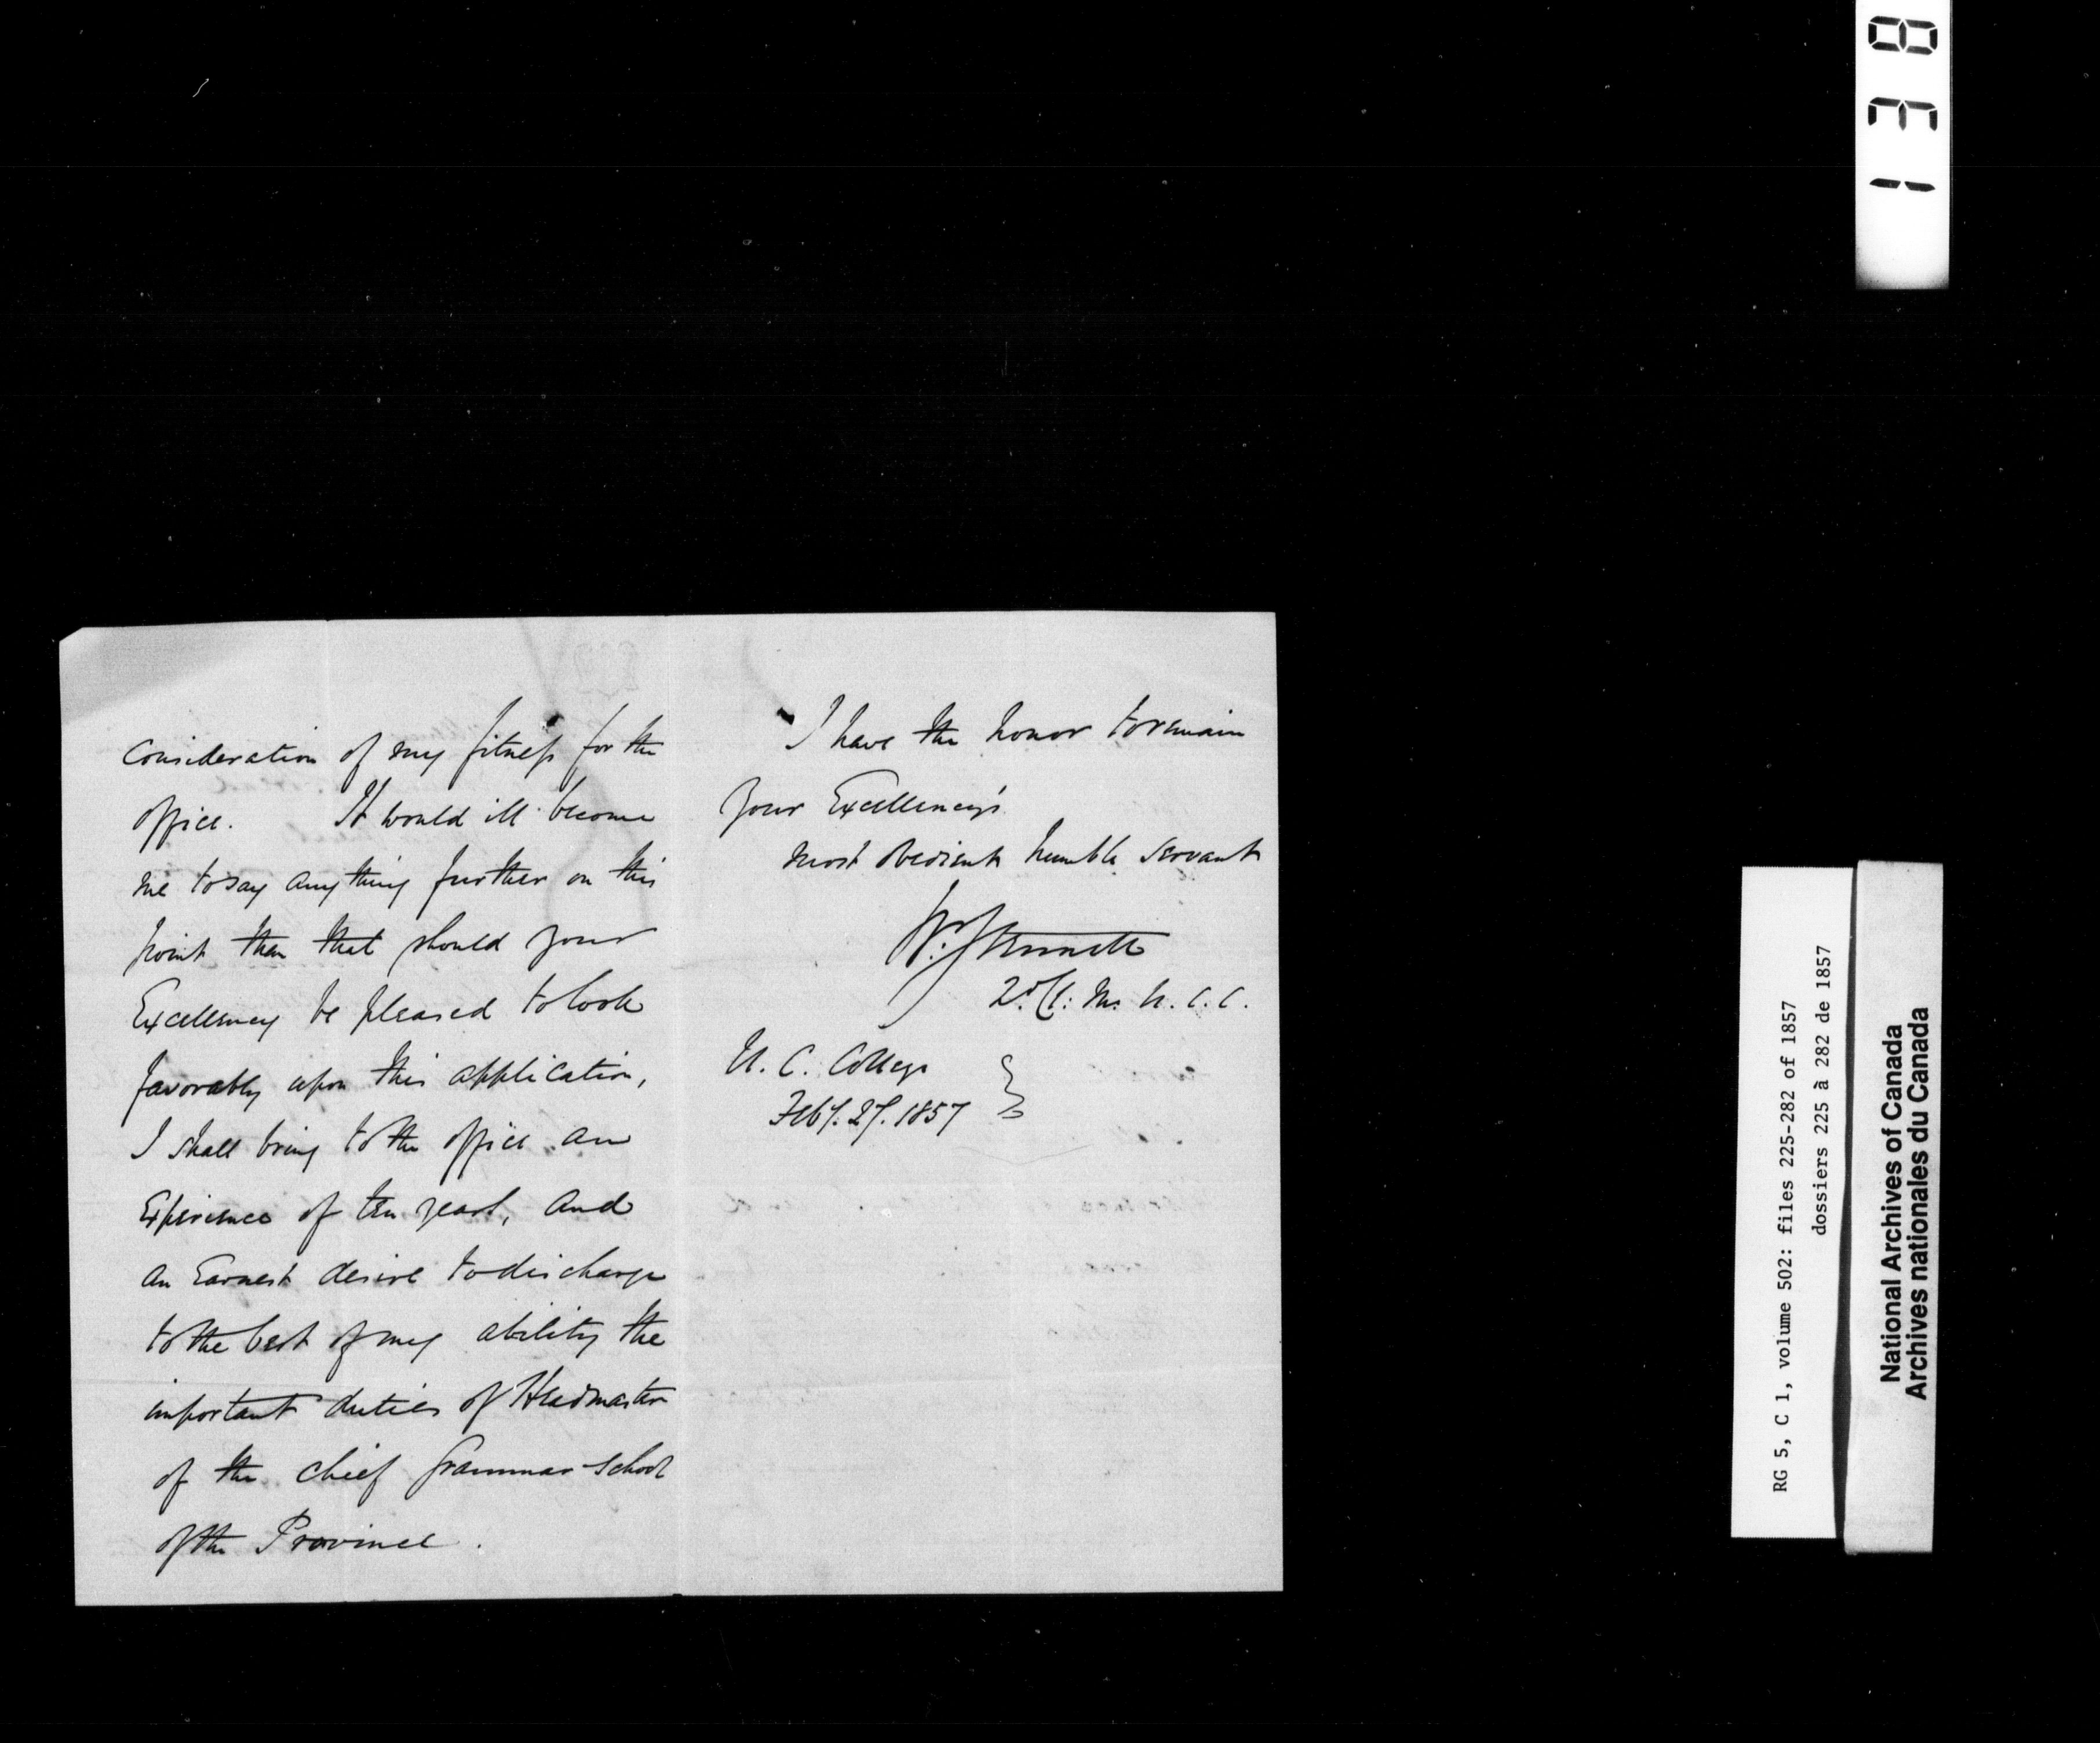 consideration of my fitness for the
office. It would ill become
me to say anything further on this
point than that should your
Excellency be pleased to look
favorably upon this application,
I shall bring to the office an
Experience of ten years, and
an Earnest desire to discharge
to the best of my ability the
important duties of Headmaster
of the chief Grammar School
of the Province.
I have the honor to remain
Your Excellency's
most obedient humble servant
W. Stennett
2d. Cl: M. U. C. C.
U. C. College
Feby. 27. 1857
138
RG 5, C 1, volume 502: files 225-282 of 1857
dossiers 225 à 282 de 1857
National Archives of Canada
Archives nationales du Canada